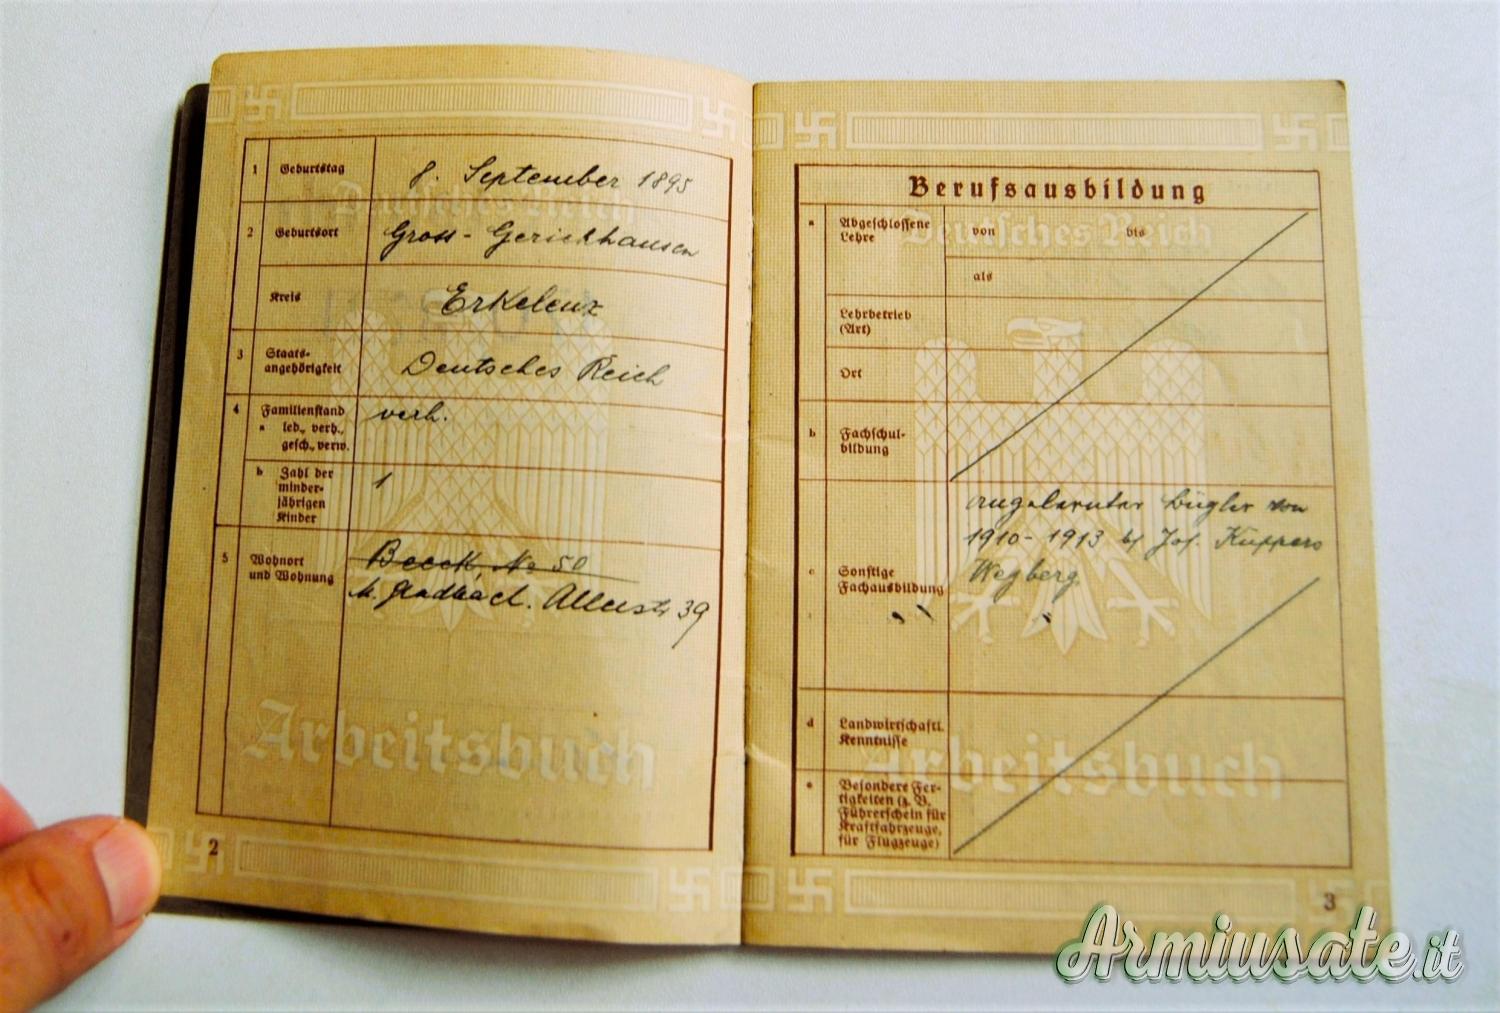 1 Geburtstag 8. September 1895
2 Geburtsort Gross-Gerickhausen
Kreis Erkelenz
3 Staats-
angehörigkeit Deutsches Reich
4 Familienstand verh.
a led., verh.,
gesch., verw.
b Zahl der 1
minder-
jährigen
Kinder
5 Wohnort Beeck, No 50
und Wohnung M. Gladbach. Allerstr 39
Deutsches Reich
Arbeitsbuch
2
Berufsausbildung
a Abgeschlossene
Lehre von bis
als
Lehrbetrieb
(Art)
Ort
b Fachschul-
bildung
angelernter Bügler von
1910-1913 b/ Jos. Küppers
Wegberg
c Sonstige
Fachausbildung
d Landwirtschaftl.
Kenntnisse
e Besondere Fer-
tigkeiten (z. B.
Führerschein für
Kraftfahrzeuge,
für Flugzeuge)
Deutsches Reich
Arbeitsbuch
3
Armiusate.it